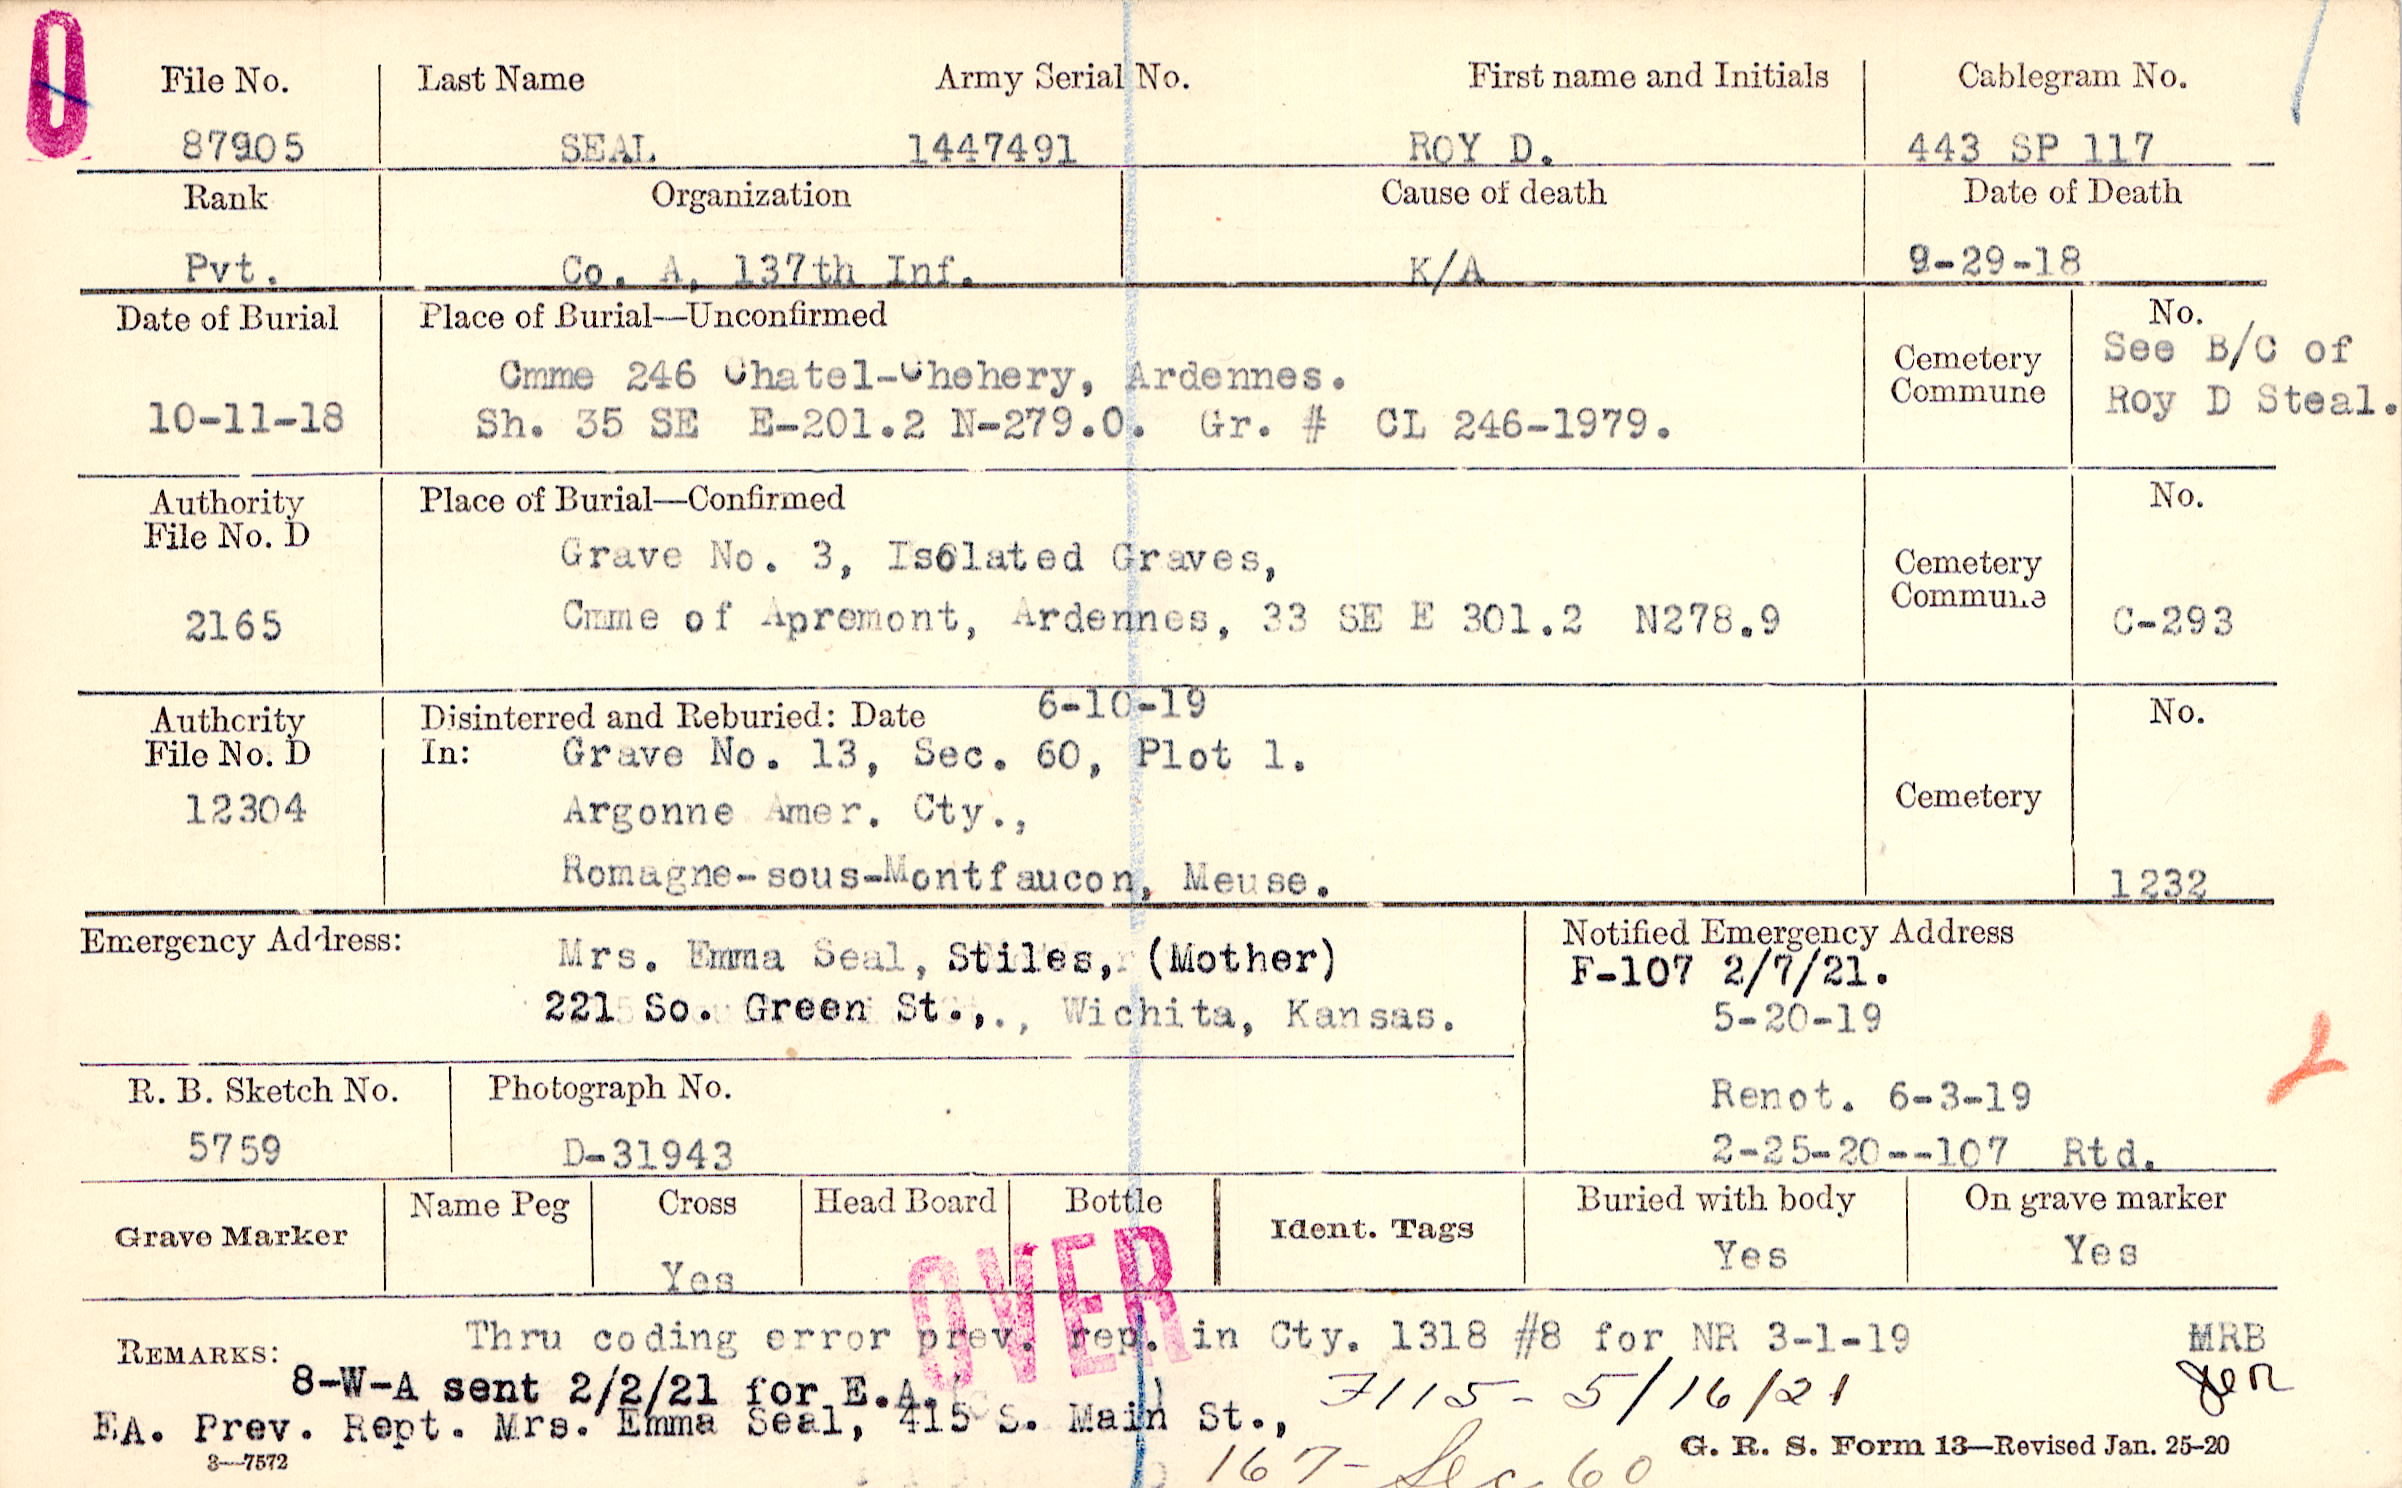 File No. Last Name Army Serial No. First name and Initials Cablegram No.
87905 SEAL 1447491 ROY D. 443 SP 117
Rank Organization Cause of death Date of Death
Pvt. Co. A, 137th Inf. K/A 9-29-18
Date of Burial Place of Burial—Unconfirmed Cemetery Commune No.
See B/C of
Roy D Steal.
Cmme 246 Chatel-Chehery, Ardennes.
10-11-18 Sh. 35 SE E-201.2 N-279.0. Gr. # CL 246-1979.
Authority File No. D Place of Burial—Confirmed Cemetery Commune No.
Grave No. 3, Isolated Graves,
2165 Cmme of Apremont, Ardennes, 33 SE E 301.2 N278.9 C-293
Authority File No. D Disinterred and Reburied: Date 6-10-19 No.
In: Grave No. 13, Sec. 60, Plot 1.
12304 Argonne Amer. Cty., Cemetery
Romagne-sous-Montfaucon, Meuse. 1232
Emergency Address: Mrs. Emma Seal, Stiles, (Mother)
221 So. Green St.,., Wichita, Kansas.
Notified Emergency Address
F-107 2/7/21.
5-20-19
Renot. 6-3-19
2-25-20--107 Rtd.
R. B. Sketch No. Photograph No.
5759 D-31943
Grave Marker Name Peg Cross Head Board Bottle Ident. Tags Buried with body On grave marker
Yes Yes Yes
OVER
REMARKS: Thru coding error prev. rep. in Cty. 1318 #8 for NR 3-1-19 MRB
8-W-A sent 2/2/21 for E.A. 7115 - 5/16/21
EA. Prev. Rept. Mrs. Emma Seal, 415 S. Main St.,
3—7572 167- Sec 60 G. R. S. Form 13—Revised Jan. 25-20